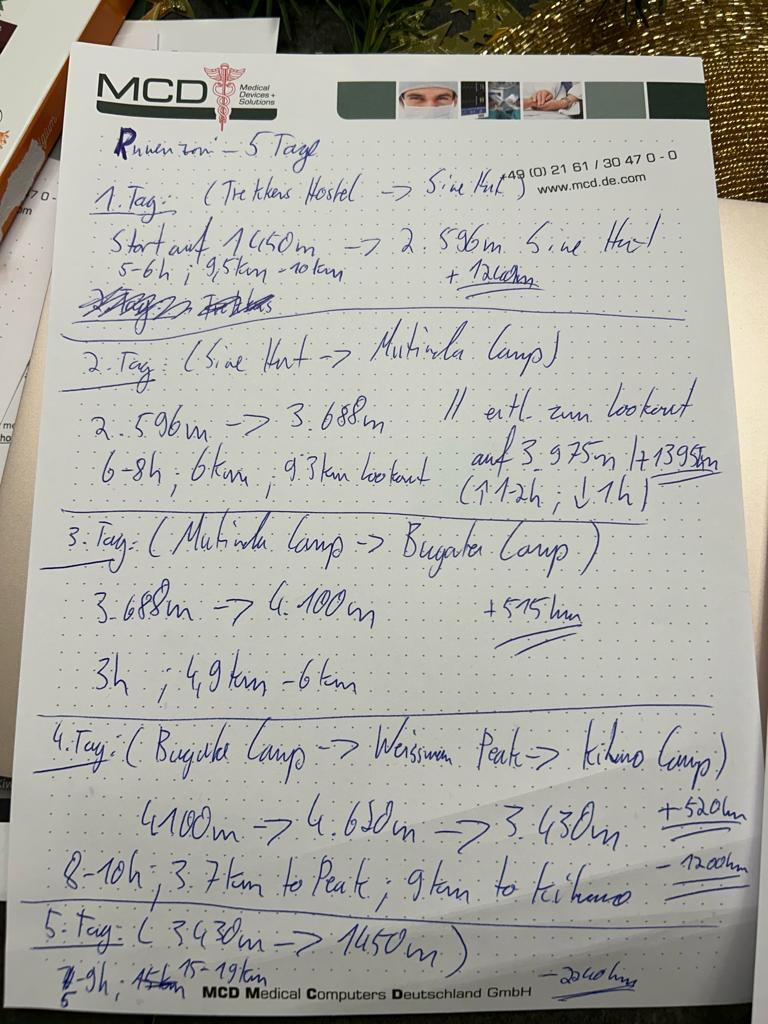 MCD
Medical
Devices +
Solutions
+49 (0) 21 61 / 30 47 0 - 0
www.mcd.de.com
Ruwenzori - 5 Tage
1. Tag: (Trekkers Hostel -> Sine Hut)
Start auf 1450m -> 2.596m Sine Hut
5-6h ; 9,5km - 10km + 1200hm
2. Tag: (Sine Hut -> Mutinda Camp)
2.596m -> 3.688m // evtl. zum Lookout
6-8h ; 6km ; 9.3km Lookout auf 3.975m /+1395hm
(↑1-2h ; ↓1h)
3. Tag: (Mutinda Camp -> Bugata Camp)
3.688m -> 4.100m +515hm
3h ; 4,9km - 6km
4. Tag: (Bugata Camp -> Weissman Peak -> Kiharo Camp)
4100m -> 4.620m -> 3.430m +520hm
8-10h ; 3.7km to Peak ; 9km to Kiharo - 1200hm
5. Tag: (3.430m -> 1450m)
5-9h ; 15-19km - 2240hm
MCD Medical Computers Deutschland GmbH